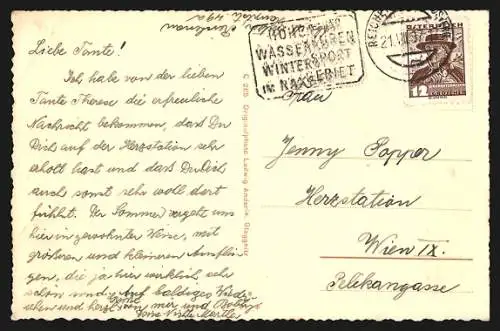 Liebe Tante!
Ich habe von der lieben
Tante Therese die erfreuliche
Nachricht bekommen, dass Du
Dich auf der Herzstation sehr
erholt hast und dass Du Dich
auch sonst sehr wohl dort
fühlst. Der Sommer vergeht uns
hier in gewohnter Weise, mit
größeren und kleineren Ausflü-
gen, die ja hier wirklich sehr
schön sind. Auf baldiges Wieder-
sehen und herzl. von mir und
C 265 Originalphoto Ludwig Anderle, Gloggnitz
WASSERKUREN
WINTERSPORT
IM RAXGEBIET
REICHENAU
21.VII.
ÖSTERREICH
12
Frau
Jenny Popper
Herzstation
Wien IX.
Pelikangasse